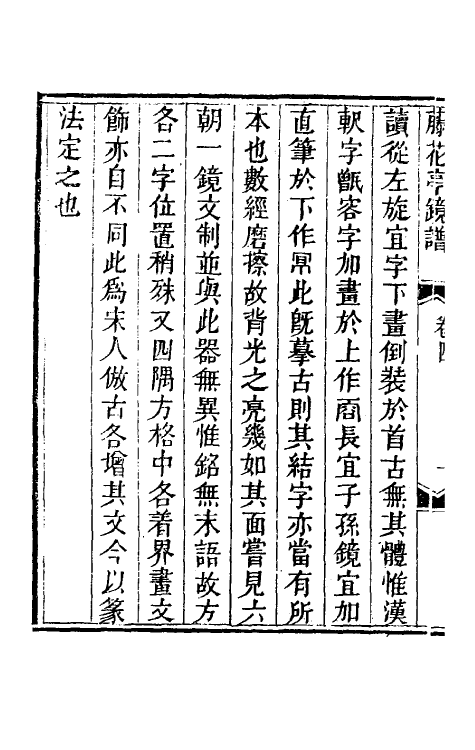 藤花亭鏡譜 卷四 一
讀從左旋宜字下畫倒裝於首古無其體惟漢
軹字甑容字加畫於上作啇長宜子孫鏡宜加
直筆於下作𠕒此旣摹古則其結字亦當有所
本也數經磨擦故背光之亮幾如其面嘗見六
朝一鏡文制並與此器無異惟銘無末語故方
各二字位置稍殊又四隅方格中各着界畫文
飾亦自不同此爲宋人倣古各增其文今以篆
法定之也